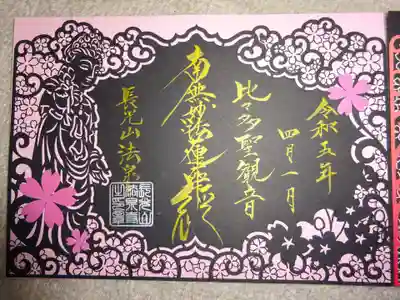 令和五年
四月一日
比々多聖観音
南無妙法蓮華経
長光山法泉
長光山
法泉寺
之印